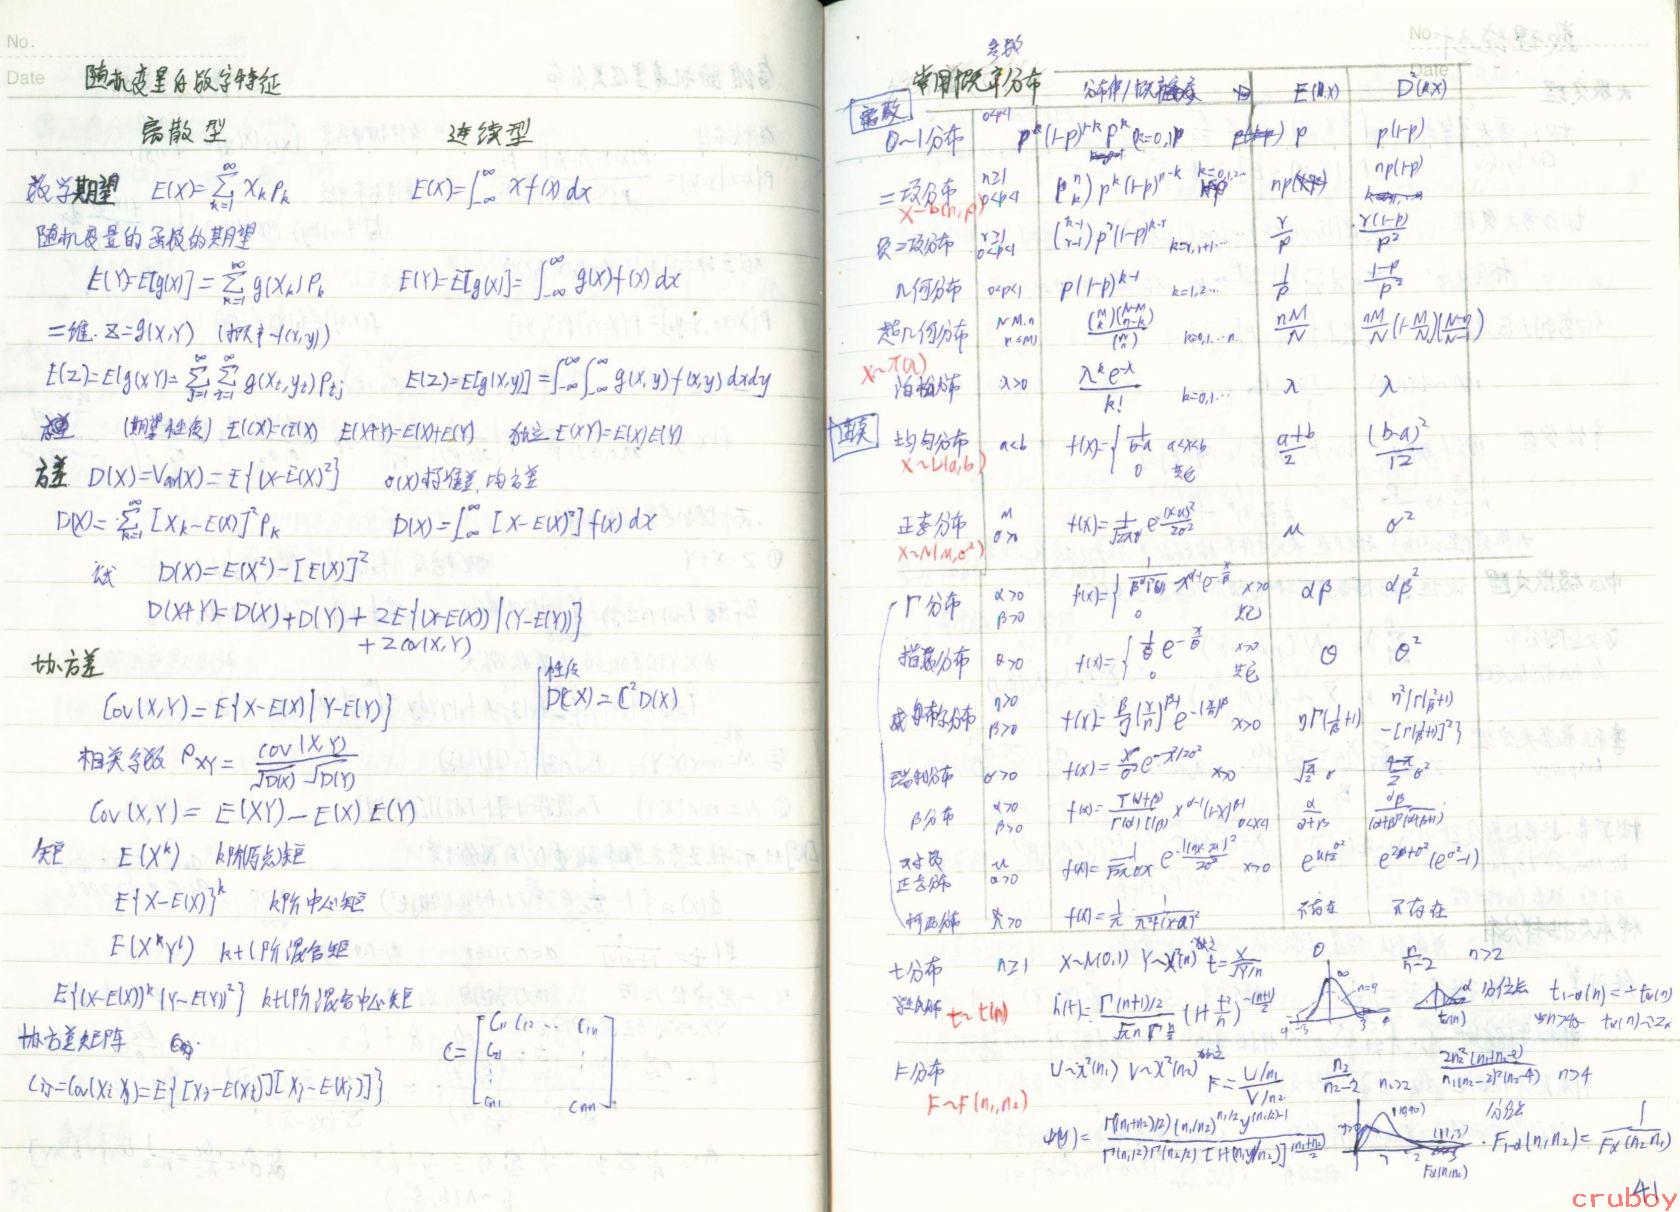 No.
Date
随机变量的数字特征
离散型 连续型
数学期望 E(X)=∑_{k=1}^{∞} x_k p_k E(X)=∫_{-∞}^{∞} x f(x) dx
随机变量的函数的期望
E(Y)=E[g(X)]=∑_{k=1}^{∞} g(x_k) p_k E(Y)=E[g(X)]=∫_{-∞}^{∞} g(x) f(x) dx
二维. Z=g(X,Y) (f(x,y))
E(Z)=E(g(X,Y)=∑_{j=1}^{∞}∑_{i=1}^{∞} g(x_i,y_j) p_{ij} E(Z)=E[g(X,Y)]=∫_{-∞}^{∞}∫_{-∞}^{∞} g(x,y) f(x,y) dxdy
(期望性质) E(CX)=CE(X) E(X+Y)=E(X)+E(Y) 独立 E(XY)=E(X)E(Y)
方差 D(X)=Var(X)=E{(X-E(X)^2} σ(X)标准差,均方差
D(X)=∑_{k=1}^{∞} [x_k-E(X)]^2 p_k D(X)=∫_{-∞}^{∞} [X-E(X)^2] f(x) dx
D(X)=E(X^2)-[E(X)]^2
D(X+Y)=D(X)+D(Y)+2E{(X-E(X))(Y-E(Y))}
+2cov(X,Y)
协方差
性质
D(CX)=C^2 D(X)
Cov(X,Y)=E{X-E(X)|Y-E(Y)}
相关系数 ρ_{XY}=cov(X,Y)/(√D(X) √D(Y))
Cov(X,Y)=E(XY)-E(X)E(Y)
矩 E(X^k) k阶原点矩
E{X-E(X)}^k k阶中心矩
E(X^k Y^l) k+l阶混合矩
E{(X-E(X))^k (Y-E(Y))^l} k+l阶混合中心矩
协方差矩阵
C=[C_{11} C_{12} ... C_{1n}
C_{21}
C_{n1} C_{nn}]
C_{ij}=Cov(X_i X_j)=E{[X_i-E(X_i)][X_j-E(X_j)]}
No
Date
常用概率分布 参数 分布律/概率密度 E(X) D(X)
离散
0~1分布 0<p<1 p^k(1-p)^{1-k} k=0,1 p p(1-p)
二项分布 n≥1 0<p<1 (n k) p^k(1-p)^{n-k} k=0,1,2... np np(1-p)
X~b(n,p)
负二项分布 r≥1 0<p<1 (k-1 r-1) p^r(1-p)^{k-r} k=r,r+1... r/p r(1-p)/p^2
几何分布 0<p<1 p(1-p)^{k-1} k=1,2... 1/p (1-p)/p^2
超几何分布 N,M,n n≤M (M k)(N-M n-k)/(N n) k=0,1...n nM/N nM/N(1-M/N)(N-n/N-1)
X~π(λ)
泊松分布 λ>0 λ^k e^{-λ}/k! k=0,1... λ λ
连续
均匀分布 a<b f(x)={1/(b-a) a<x<b 0 其它 (a+b)/2 (b-a)^2/12
X~U(a,b)
正态分布 μ σ>0 f(x)=1/(√2π σ) e^{-(x-μ)^2/2σ^2} μ σ^2
X~N(μ,σ^2)
Γ分布 α>0 β>0 f(x)={1/(β^α Γ(α)) x^{α-1} e^{-x/β} x>0 0 其它 αβ αβ^2
指数分布 θ>0 f(x)={1/θ e^{-x/θ} x>0 0 其它 θ θ^2
威布尔分布 η>0 β>0 f(x)=β/η (x/η)^{β-1} e^{-(x/η)^β} x>0 ηΓ(1/β+1) η^2{Γ(2/β+1)-[Γ(1/β+1)]^2}
瑞利分布 σ>0 f(x)=x/σ^2 e^{-x^2/2σ^2} x>0 √(π/2) σ (4-π)/2 σ^2
β分布 α>0 β>0 f(x)=Γ(α+β)/(Γ(α)Γ(β)) x^{α-1}(1-x)^{β-1} 0<x<1 α/(α+β) αβ/((α+β)^2(α+β+1))
对数正态分布 μ σ>0 f(x)=1/(√2π σx) e^{-(lnx-μ)^2/2σ^2} x>0 e^{μ+σ^2/2} e^{2μ+σ^2}(e^{σ^2}-1)
柯西分布 λ>0 f(x)=1/π · λ/(λ^2+(x-a)^2) 不存在 不存在
t分布 n≥1 X~N(0,1) Y~χ^2(n) 独立 t=X/√(Y/n) 0 n/(n-2) n>2
t~t(n) h(t)=Γ(n+1)/2/(√πn Γ n/2) (1+t^2/n)^{-(n+1)/2} 分位点 t_{1-α}(n)=-t_α(n)
t_α(n) t_α(n)≈Z_α
F分布 U~χ^2(n_1) V~χ^2(n_2) 独立 F=U/n_1/V/n_2 n_2/(n_2-2) n_2>2 2n_2^2(n_1+n_2-2)/(n_1(n_2-2)^2(n_2-4)) n>4
F~F(n_1,n_2)
ψ(y)=Γ(n_1+n_2)/2)(n_1/n_2)^{n_1/2} y^{(n_1/2)-1}/(Γ(n_1/2)Γ(n_2/2)[1+(n_1y/n_2)]^{(n_1+n_2)/2}) 分位点 F_{1-α}(n_1,n_2)=1/F_α(n_2,n_1)
F_α(n_1,n_2)
41
cruboy